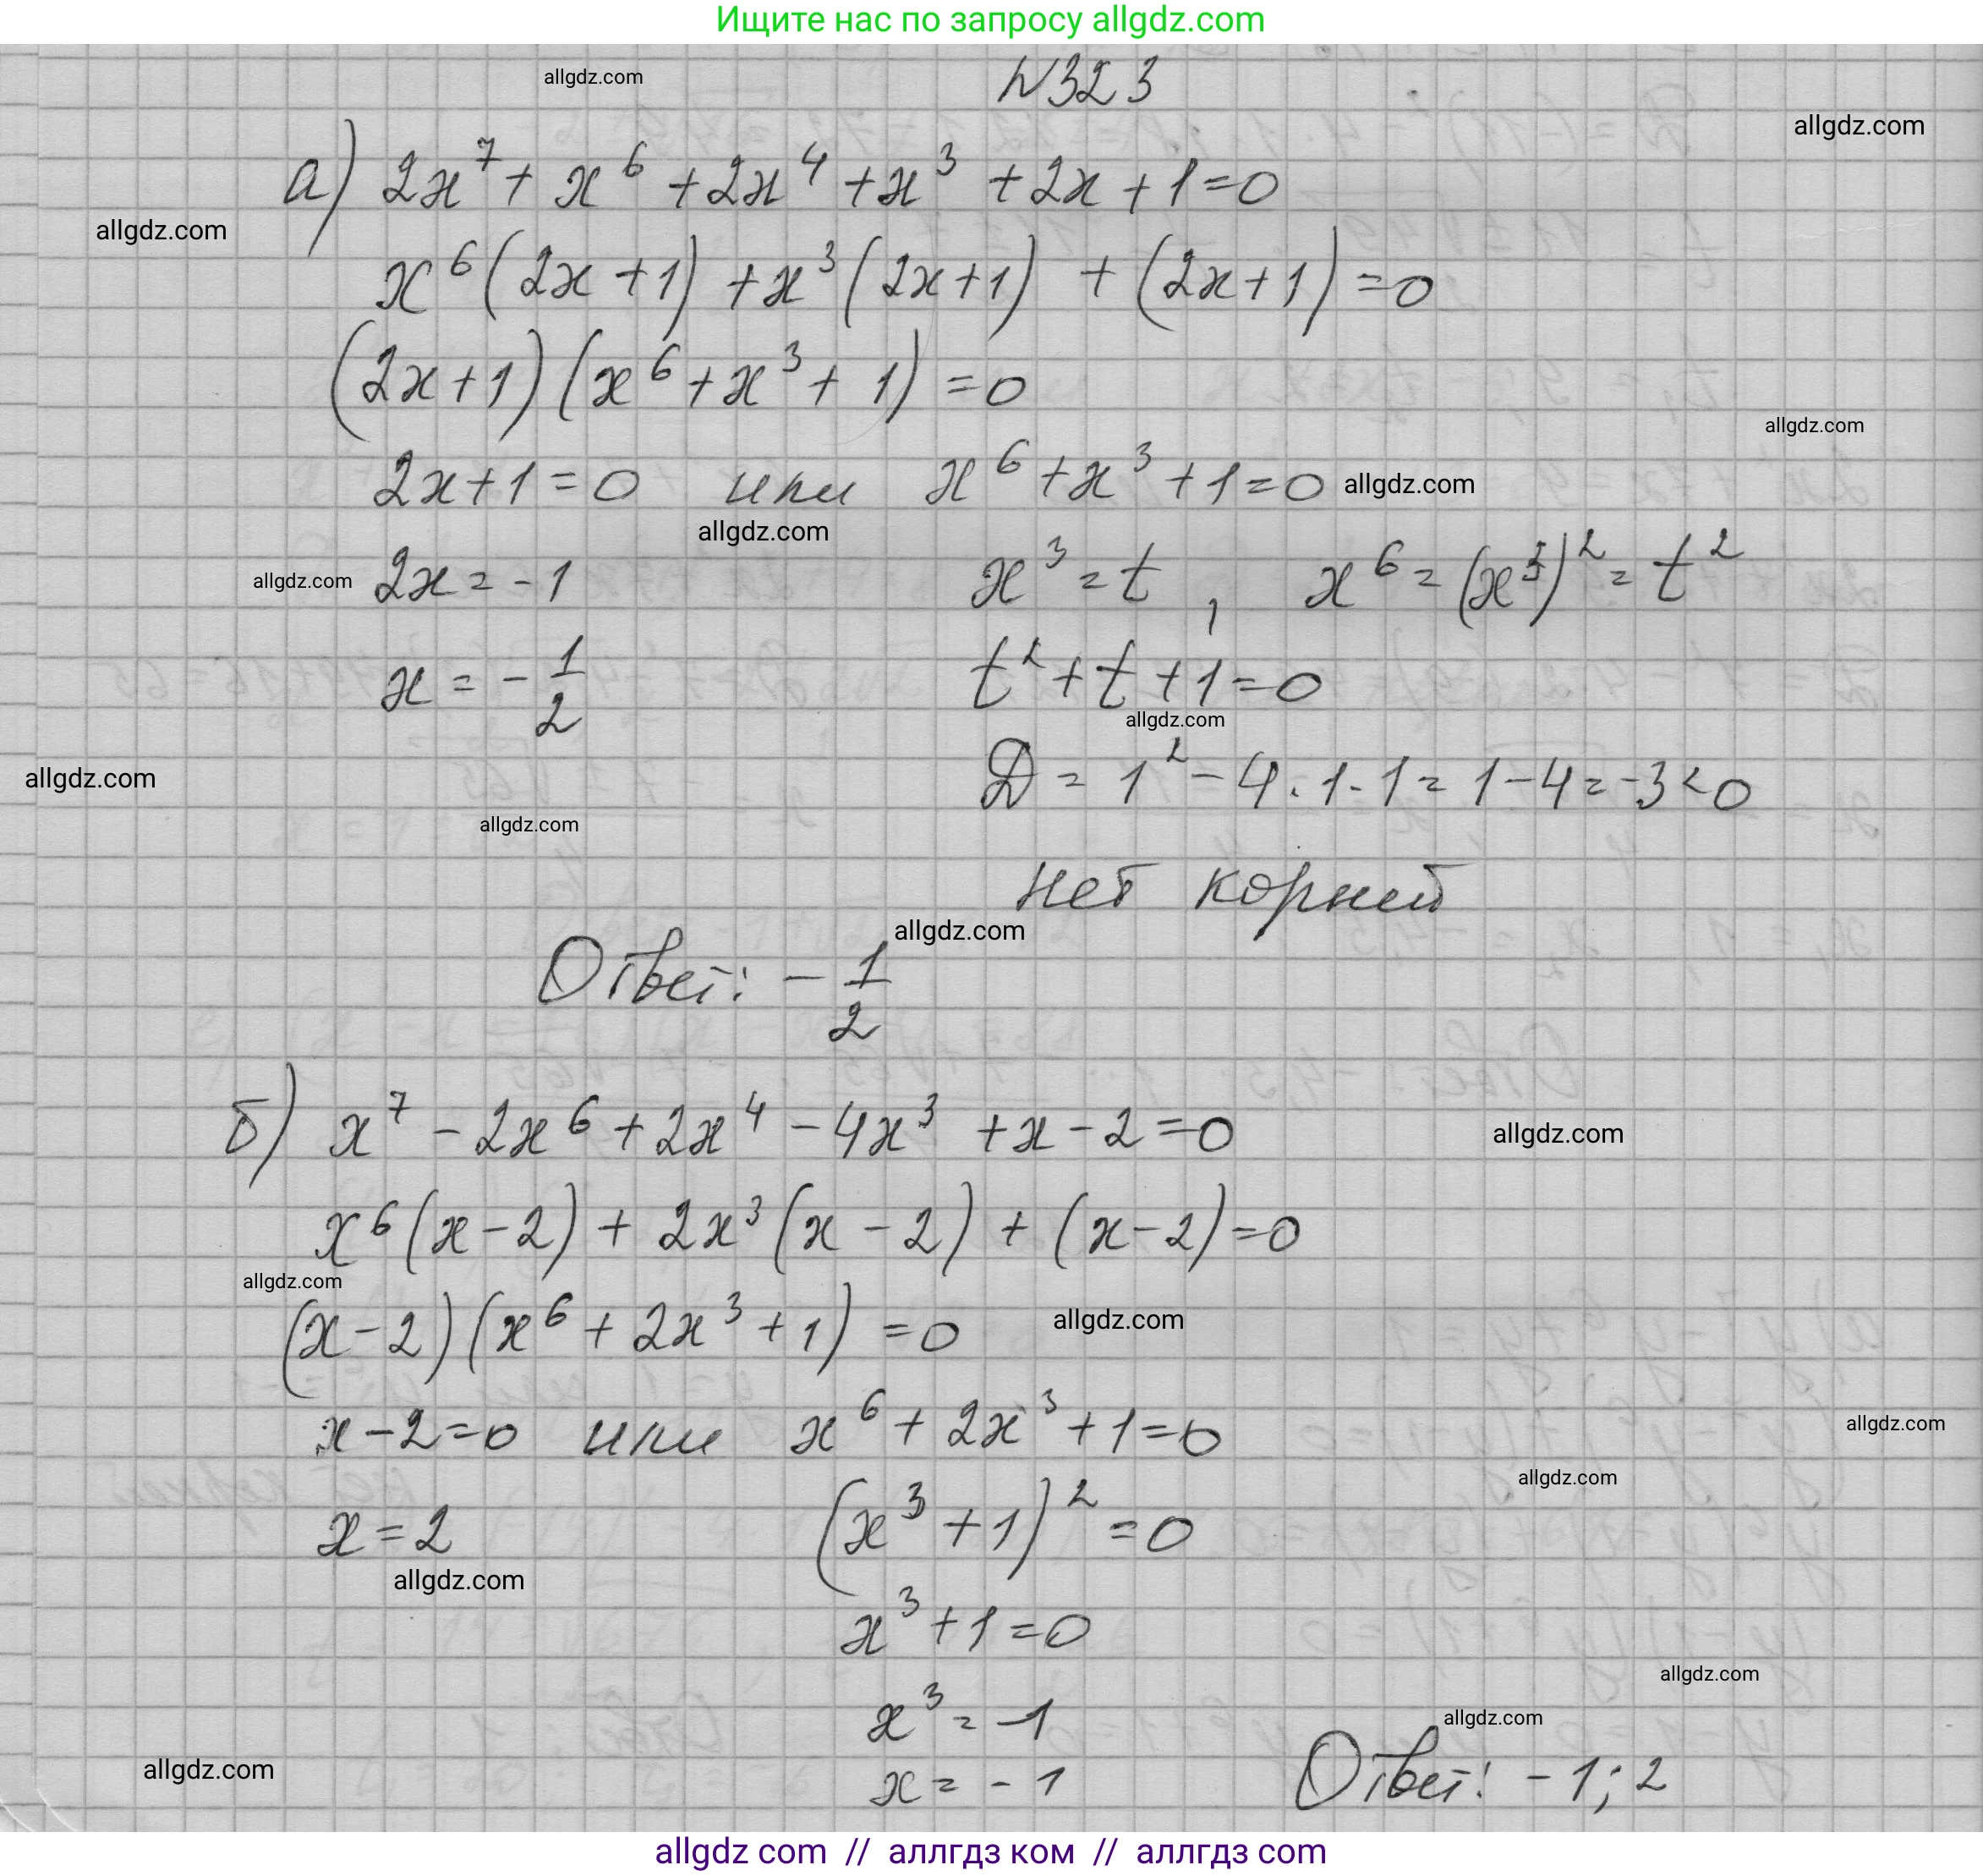 Ищите нас по запросу allgdz.com
allgdz.com
N323
allgdz.com
а) 2x⁷ + x⁶ + 2x⁴ + x³ + 2x + 1 = 0
allgdz.com
x⁶(2x + 1) + x³(2x + 1) + (2x + 1) = 0
(2x + 1)(x⁶ + x³ + 1) = 0
allgdz.com
2x + 1 = 0 или x⁶ + x³ + 1 = 0 allgdz.com
allgdz.com
allgdz.com 2x = -1 x³ = t, x⁶ = (x³)² = t²
x = -1/2 t² + t + 1 = 0
allgdz.com
allgdz.com D = 1² - 4·1·1 = 1 - 4 = -3 < 0
allgdz.com
нет корней
allgdz.com
Ответ: -1/2
б) x⁷ - 2x⁶ + 2x⁴ - 4x³ + x - 2 = 0 allgdz.com
x⁶(x - 2) + 2x³(x - 2) + (x - 2) = 0
allgdz.com
(x - 2)(x⁶ + 2x³ + 1) = 0 allgdz.com
x - 2 = 0 или x⁶ + 2x³ + 1 = 0 allgdz.com
allgdz.com
x = 2 (x³ + 1)² = 0
allgdz.com
x³ + 1 = 0
allgdz.com
x³ = -1 allgdz.com
allgdz.com x = -1 Ответ: -1; 2
allgdz com // аллгдз ком // аллгдз com